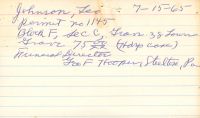 Johnson, Leo - 7-15-65
permit no 1145
Block F, Sec C, Gran 38 Lower
Grave 75
Funeral Director
Geo F Hoopes, Shelton, Pa